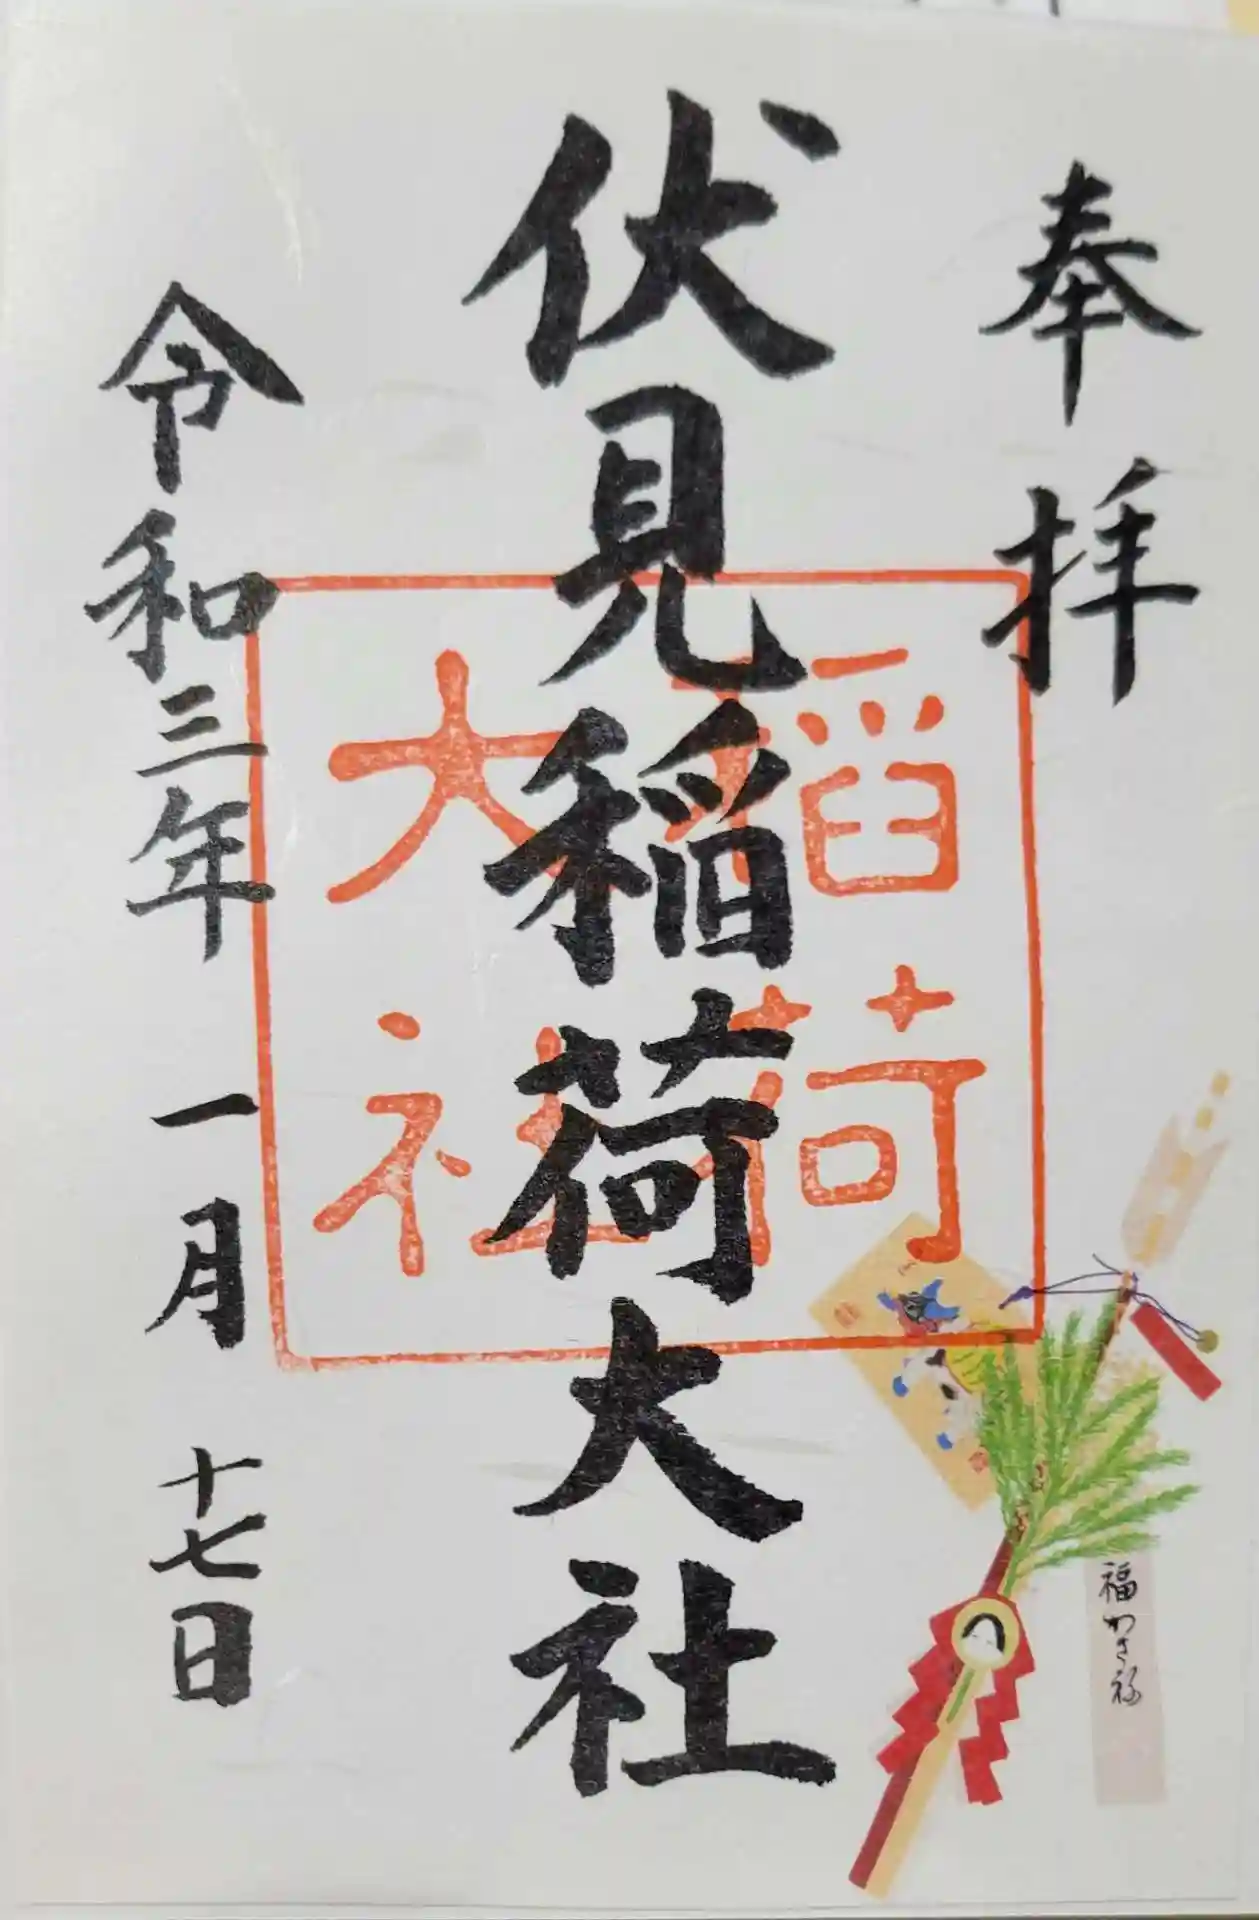 奉拝
伏見稲荷大社
稲荷
大社
令和三年一月十七日
福かさね